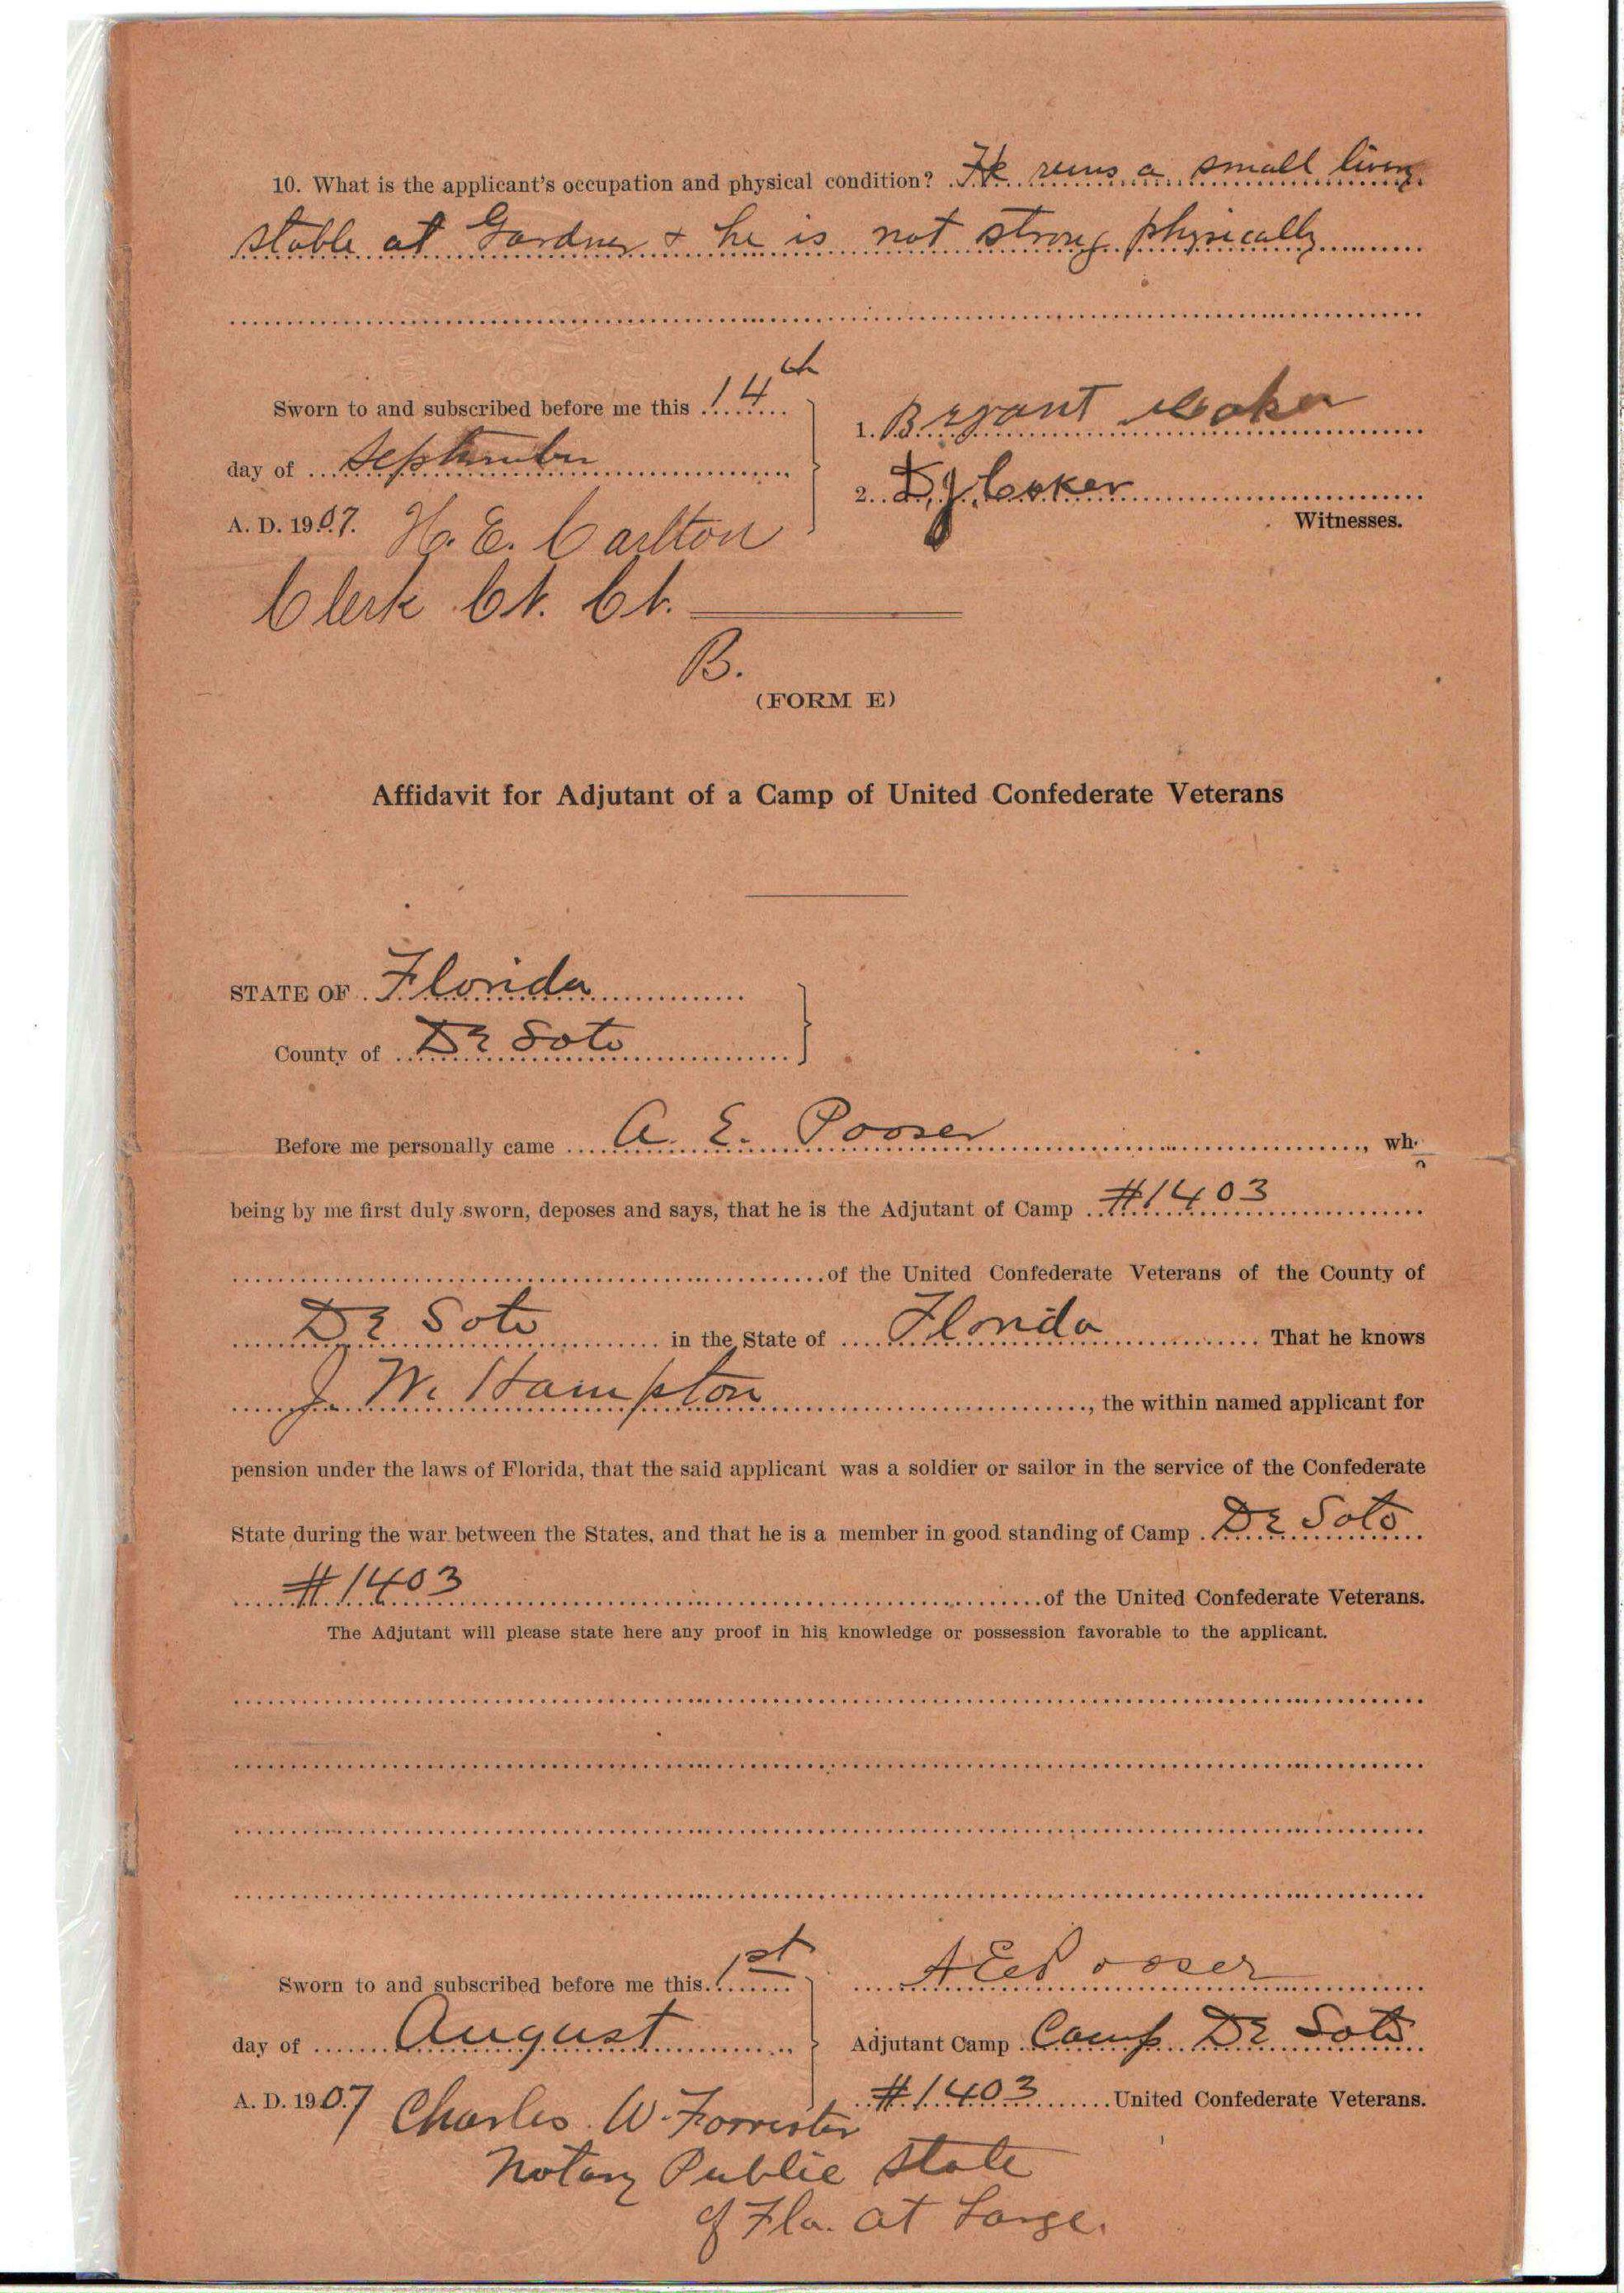 10. What is the applicant's occupation and physical condition? He runs a small livery
stable at Gardner & he is not strong physically
Sworn to and subscribed before me this 14th
day of September
A. D. 1907. H. E. Carlton
Clerk Ct. Ct.
1. Bryant Coker
2. D J Coker
Witnesses.
B.
(FORM E)
Affidavit for Adjutant of a Camp of United Confederate Veterans
STATE OF Florida
County of De Soto
Before me personally came A. E. Pooser, who
being by me first duly sworn, deposes and says, that he is the Adjutant of Camp #1403
of the United Confederate Veterans of the County of
De Soto in the State of Florida. That he knows
J. W. Hampton, the within named applicant for
pension under the laws of Florida, that the said applicant was a soldier or sailor in the service of the Confederate
State during the war between the States, and that he is a member in good standing of Camp De Soto
#1403 of the United Confederate Veterans.
The Adjutant will please state here any proof in his knowledge or possession favorable to the applicant.
Sworn to and subscribed before me this 1st
day of August
A. D. 1907 Charles W. Forrester
Notary Public State
of Fla. at Large.
A E Pooser
Adjutant Camp Camp De Soto
#1403 United Confederate Veterans.